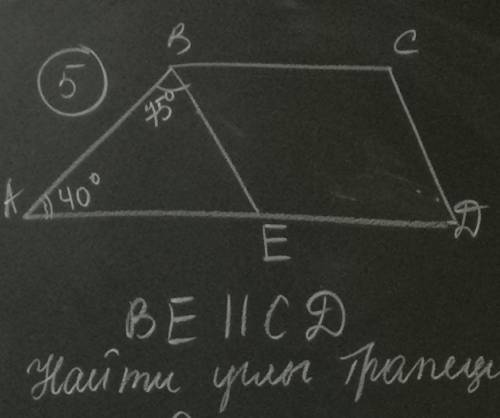 5
B
C
75°
A
40°
E
D
BE || CD
Найти углы трапеци